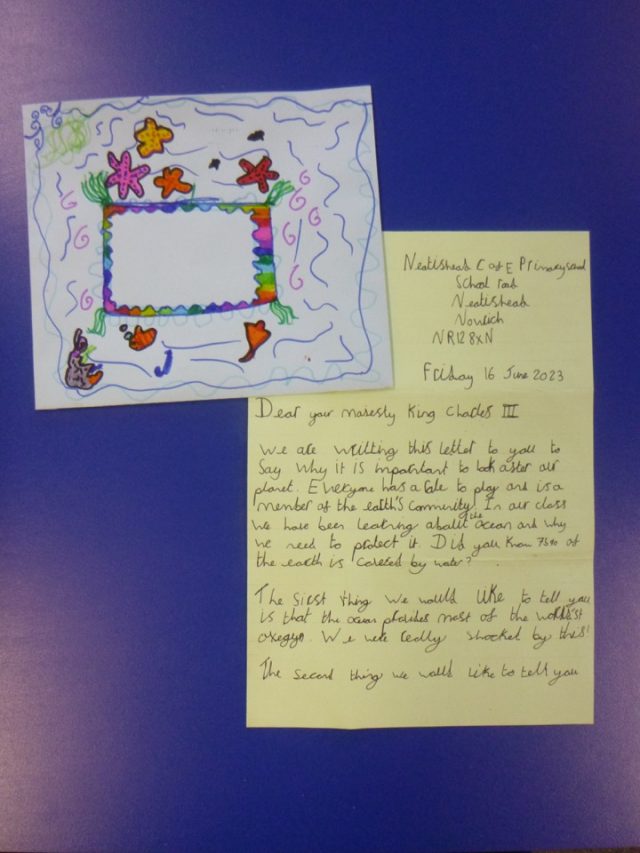 Neatishead C of E Primary school
School road
Neatishead
Norwich
NR12 8XN
Friday 16 June 2023
Dear your majesty King Charles III
We are writting this letter to you to
say why it is important to look after our
planet. Everyone has a role to play and is a
member of the earth's community. In our class
we have been learning about the ocean and why
we need to protect it. Did you know 73% of
the earth is covered by water?
The first thing we would like to tell you
is that the ocean provides most of the
oxegyn. We were really shocked by this!
The second thing we would like to tell you